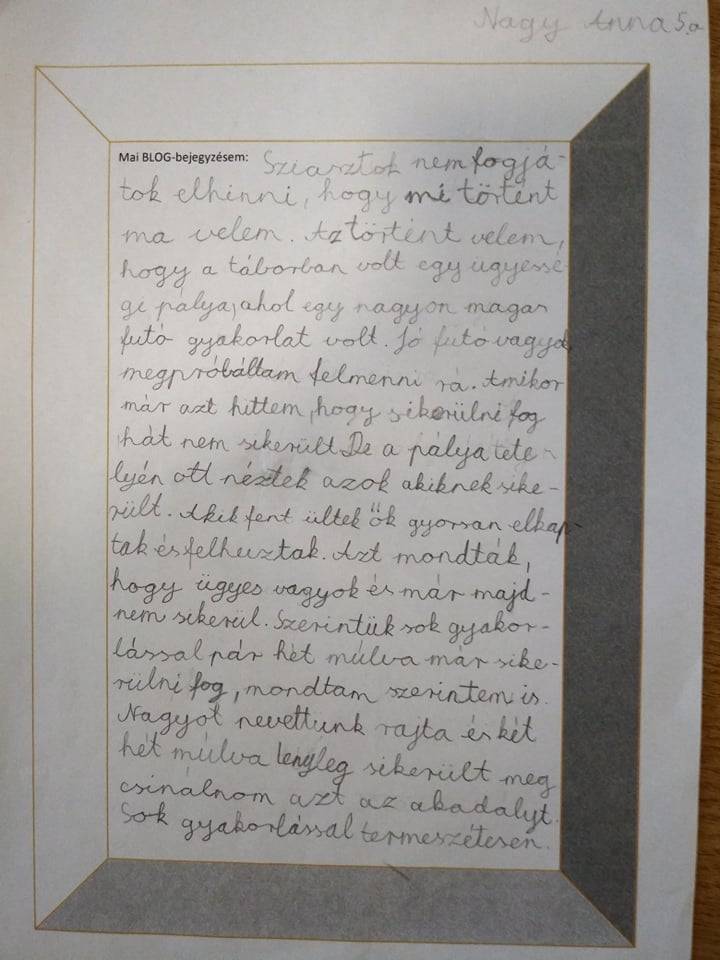 Nagy Anna 5.a
Mai BLOG-bejegyzésem: Sziasztok nem fogjá-
tok elhinni, hogy mi történt
ma velem. Az történt velem,
hogy a táborban volt egy ügyessé
gi pálya, ahol egy nagyon magas
futó gyakorlat volt. Jó futó vagyok
megpróbáltam felmenni rá. Amikor
már azt hittem, hogy sikerülni fog
hát nem sikerült. De a pálya tete-
lyén ott néztek azok akiknek sike-
rült. Akik fent ültek ők gyorsan elkap-
tak és felhuztak. Azt mondták,
hogy ügyes vagyok és már majd-
nem sikerül. Szerintük sok gyakor-
lással pár hét múlva már sike-
rülni fog, mondtam szerintem is.
Nagyot nevettunk rajta és két
hét múlva lenyleg sikerült meg
csinálnom azt az akadalyt.
Sok gyakorlással termeszétesen.